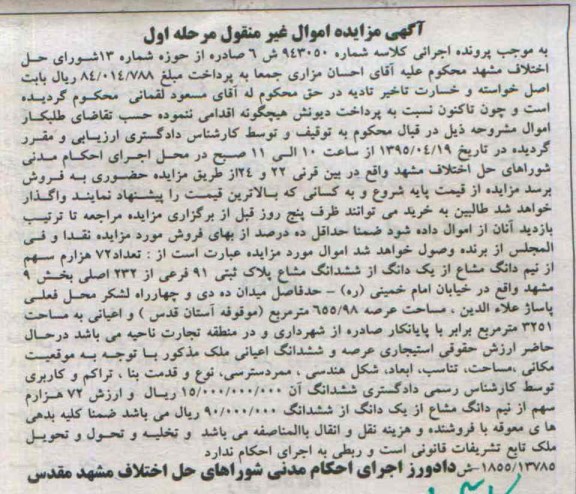 آگهی مزایده اموال غیر منقول مرحله اول
به موجب پرونده اجرائی کلاسه شماره ۹۴۳۰۵۰ ش ۶ صادره از حوزه شماره ۱۳شورای حل
اختلاف مشهد محکوم علیه آقای احسان مزاری جمعا به پرداخت مبلغ ۸۴/۰۱۴/۷۸۸ ریال بابت
اصل خواسته و خسارت تاخیر تادیه در حق محکوم له آقای مسعود لقمانی محکوم گردیده
است و چون تاکنون نسبت به پرداخت دیونش هیچگونه اقدامی ننموده حسب تقاضای طلبکار
اموال مشروحه ذیل در قبال محکوم به توقیف و توسط کارشناس دادگستری ارزیابی و مقرر
گردیده در تاریخ ۱۳۹۵/۰۴/۱۹ از ساعت ۱۰ الی ۱۱ صبح در محل اجرای احکام مدنی
شوراهای حل اختلاف مشهد واقع در بین قرنی ۲۲ و ۲۴از طریق مزایده حضوری به فروش
برسد مزایده از قیمت پایه شروع و به کسانی که بالاترین قیمت را پیشنهاد نمایند واگذار
خواهد شد طالبین به خرید می توانند ظرف پنج روز قبل از برگزاری مزایده مراجعه تا ترتیب
بازدید آنان از اموال داده شود ضمنا حداقل ده درصد از بهای فروش مورد مزایده نقدا و فی
المجلس از برنده وصول خواهد شد اموال مورد مزایده عبارت است از : تعداد۷۲ هزارم سهم
از نیم دانگ مشاع از یک دانگ از ششدانگ مشاع پلاک ثبتی ۹۱ فرعی از ۲۳۲ اصلی بخش ۹
مشهد واقع در خیابان امام خمینی (ره) – حدفاصل میدان ده دی و چهارراه لشکر محل فعلی
پاساژ علاء الدین ، مساحت عرصه ۶۵۵/۹۸ مترمربع (موقوفه آستان قدس ) و اعیانی به مساحت
۳۲۵۱ مترمربع برابر با پایانکار صادره از شهرداری و در منطقه تجارت ناحیه می باشد درحال
حاضر ارزش حقوقی استیجاری عرصه و ششدانگ اعیانی ملک مذکور با توجه به موقعیت
مکانی ،مساحت، تناسب، ابعاد، شکل هندسی ، ممردسترسی، نوع و قدمت بنا ، تراکم و کاربری
توسط کارشناس رسمی دادگستری ششدانگ آن ۱۵/۰۰۰/۰۰۰/۰۰۰ ریال و ارزش ۷۲ هزارم
سهم از نیم دانگ مشاع از یک دانگ از ششدانگ ۹۰/۰۰۰/۰۰۰ ریال می باشد ضمنا کلیه بدهی
ها ی معوقه با فروشنده و هزینه نقل و انتقال باالمناصفه می باشد و تخلیه و تحول و تحویل
ملک تابع تشریفات قانونی است و ربطی به اجرای احکام ندارد
۱۸۵۵/۱۳۷۸۵–ش دادورز اجرای احکام مدنی شوراهای حل اختلاف مشهد مقدس